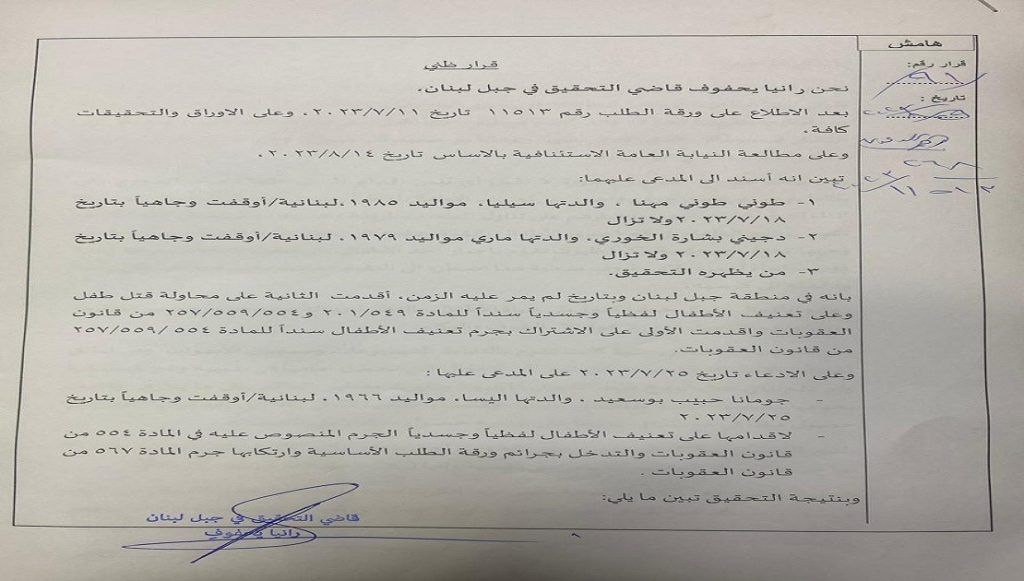 هامش
قرار رقم:
٩١
تاريخ :
قرار ظني
نحن رانيا يحفوف قاضي التحقيق في جبل لبنان،
بعد الاطلاع على ورقة الطلب رقم ١١٥١٣ تاريخ ٢٠٢٣/٧/١١، وعلى الاوراق والتحقيقات
كافة،
وعلى مطالعة النيابة العامة الاستئنافية بالاساس تاريخ ٢٠٢٣/٨/١٤،
تبين انه أسند الى المدعى عليهما:
١- طوني طوني مهنا ، والدتها سيليا، مواليد ١٩٨٥، لبنانية/أوقفت وجاهياً بتاريخ
٢٠٢٣/٧/١٨ ولا تزال
٢- دجيني بشارة الخوري، والدتها ماري مواليد ١٩٧٩، لبنانية/أوقفت وجاهياً بتاريخ
٢٠٢٣/٧/١٨ ولا تزال
٣- من يظهره التحقيق.
بانه في منطقة جبل لبنان وبتاريخ لم يمر عليه الزمن، أقدمت الثانية على محاولة قتل طفل
وعلى تعنيف الأطفال لفظياً وجسدياً سنداً للمادة ٢٠١/٥٤٩ و٢٥٧/٥٥٩/٥٥٤ من قانون
العقوبات واقدمت الأولى على الاشتراك بجرم تعنيف الأطفال سنداً للمادة ٥٥٤ /٢٥٧/٥٥٩
من قانون العقوبات.
وعلى الادعاء تاريخ ٢٠٢٣/٧/٢٥ على المدعى عليها :
- جومانا حبيب بوسعيد ، والدتها اليسا، مواليد ١٩٦٦، لبنانية/أوقفت وجاهياً بتاريخ
٢٠٢٣/٧/٢٥
- لاقدامها على تعنيف الأطفال لفظياً وجسدياً الجرم المنصوص عليه في المادة ٥٥٤ من
قانون العقوبات والتدخل بجرائم ورقة الطلب الأساسية وارتكابها جرم المادة ٥٦٧ من
قانون العقوبات .
وبنتيجة التحقيق تبين ما يلي:
قاضي التحقيق في جبل لبنان
رانيا يحفوف